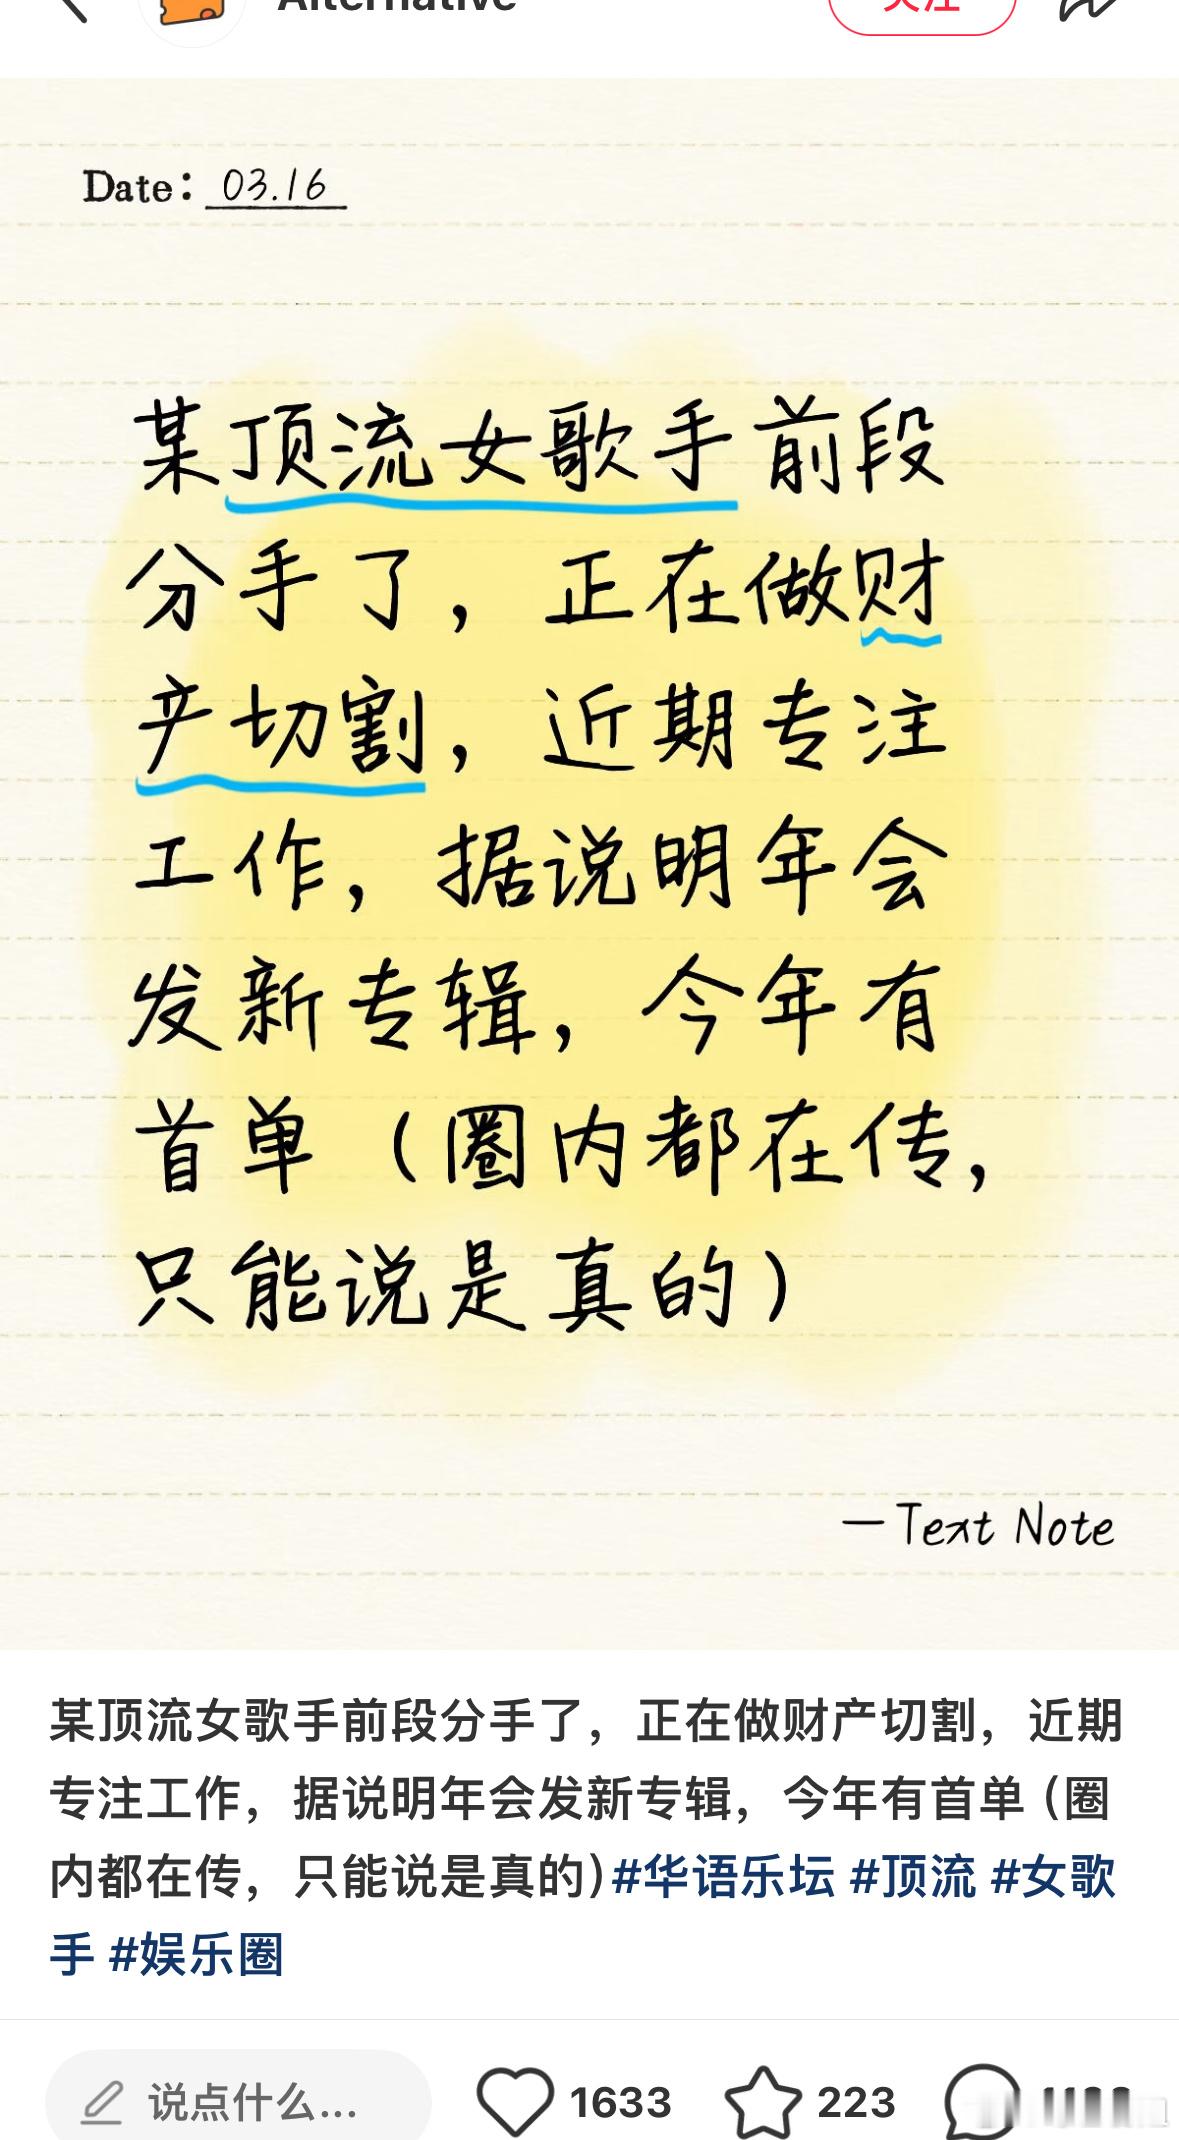 Alternative
关注
Date: 03.16
某顶流女歌手前段
分手了，正在做财
产切割，近期专注
工作，据说明年会
发新专辑，今年有
首单（圈内都在传，
只能说是真的）
—Text Note
某顶流女歌手前段分手了，正在做财产切割，近期
专注工作，据说明年会发新专辑，今年有首单（圈
内都在传，只能说是真的）#华语乐坛 #顶流 #女歌
手 #娱乐圈
说点什么...
1633
223